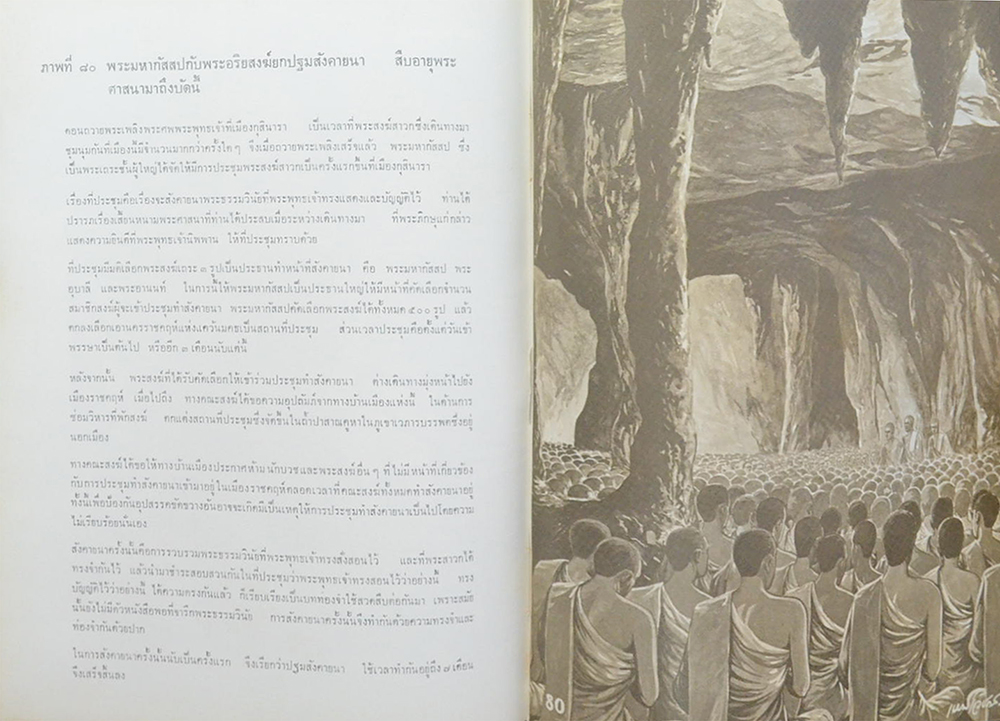 ภาพที่ ๘๐ พระมหากัสสปกับพระอริยสงฆ์ยกปฐมสังคายนา สืบอายุพระ
ศาสนามาถึงบัดนี้
ตอนถวายพระเพลิงพระศพพระพุทธเจ้าที่เมืองกุสินารา เป็นเวลาที่พระสงฆ์สาวกซึ่งเดินทางมา
ชุมนุมกันที่เมืองนี้มีจำนวนมากกว่าครั้งใดๆ จึงเมื่อถวายพระเพลิงเสร็จแล้ว พระมหากัสสป ซึ่ง
เป็นพระเถระชั้นผู้ใหญ่ได้จัดให้มีการประชุมพระสงฆ์สาวกเป็นครั้งแรกขึ้นที่เมืองกุสินารา
เรื่องที่ประชุมคือเรื่องจะสังคายนาพระธรรมวินัยที่พระพุทธเจ้าทรงแสดงและบัญญัติไว้ ท่านได้
ปรารภเรื่องเสี้ยนหนามพระศาสนาที่ท่านได้ประสบเมื่อระหว่างเดินทางมา ที่พระภิกษุแก่กล่าว
แสดงความยินดีที่พระพุทธเจ้านิพพาน ให้ที่ประชุมทราบด้วย
ที่ประชุมมีมติเลือกพระสงฆ์เถระ ๓ รูปเป็นประธานทำหน้าที่สังคายนา คือ พระมหากัสสป พระ
อุบาลี และพระอานนท์ ในการนี้ให้พระมหากัสสปเป็นประธานใหญ่ให้มีหน้าที่คัดเลือกจำนวน
สมาชิกสงฆ์ผู้จะเข้าประชุมทำสังคายนา พระมหากัสสปคัดเลือกพระสงฆ์ได้ทั้งหมด ๕๐๐ รูป แล้ว
ตกลงเลือกเอานครราชคฤห์แห่งแคว้นมคธเป็นสถานที่ประชุม ส่วนเวลาประชุมคือตั้งแต่วันเข้า
พรรษาเป็นต้นไป หรืออีก ๓ เดือนนับแต่นี้
หลังจากนั้น พระสงฆ์ที่ได้รับคัดเลือกให้เข้าร่วมประชุมทำสังคายนา ต่างเดินทางมุ่งหน้าไปยัง
เมืองราชคฤห์ เมื่อไปถึง ทางคณะสงฆ์ได้ขอความอุปถัมภ์จากทางบ้านเมืองแห่งนี้ ในด้านการ
ซ่อมวิหารที่พักสงฆ์ ตกแต่งสถานที่ประชุมซึ่งจัดขึ้นในถ้ำปาสาณคูหาในภูเขาเวภารบรรพตซึ่งอยู่
นอกเมือง
ทางคณะสงฆ์ได้ขอให้ทางบ้านเมืองประกาศห้าม นักบวชและพระสงฆ์อื่นๆ ที่ไม่มีหน้าที่เกี่ยวข้อง
กับการประชุมทำสังคายนาเข้ามาอยู่ในเมืองราชคฤห์ตลอดเวลาที่คณะสงฆ์ทั้งหมดทำสังคายนาอยู่
ทั้งนี้เพื่อป้องกันอุปสรรคขัดขวางอันอาจจะเกิดมีเป็นเหตุให้การประชุมทำสังคายนาเป็นไปโดยความ
ไม่เรียบร้อยนั่นเอง
สังคายนาครั้งนั้นคือการรวบรวมพระธรรมวินัยที่พระพุทธเจ้าทรงสั่งสอนไว้ และที่พระสาวกได้
ทรงจำกันไว้ แล้วนำมาชำระสอบสวนกันในที่ประชุมว่าพระพุทธเจ้าทรงสอนไว้ว่าอย่างนี้ ทรง
บัญญัติไว้ว่าอย่างนี้ ได้ความตรงกันแล้ว ก็เรียบเรียงเป็นบทท่องจำใช้สวดสืบต่อกันมา เพราะสมัย
นั้นยังไม่มีตัวหนังสือพอที่จารึกพระธรรมวินัย การสังคายนาครั้งนั้นจึงทำกันด้วยความทรงจำและ
ท่องจำกันด้วยปาก
ในการสังคายนาครั้งนั้นนับเป็นครั้งแรก จึงเรียกว่าปฐมสังคายนา ใช้เวลาทำกันอยู่ถึง ๗ เดือน
จึงเสร็จสิ้นลง
80